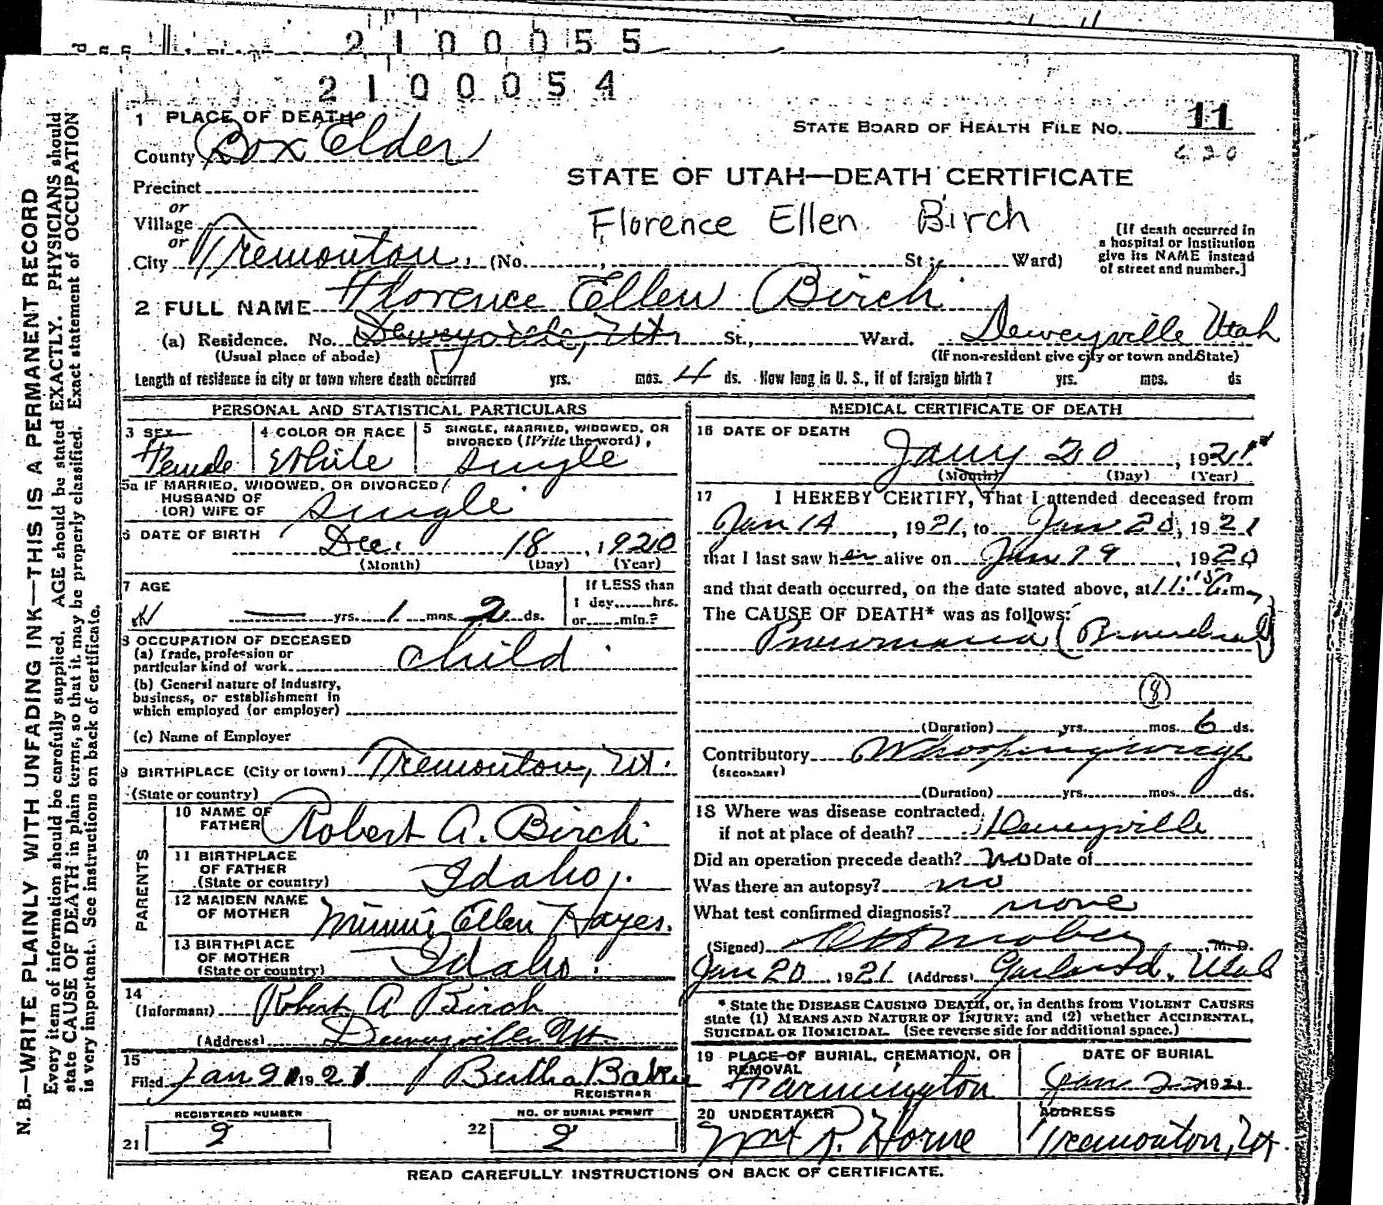 2100055
2100054
1 PLACE OF DEATH
STATE BOARD OF HEALTH FILE NO. 11
County Box Elder
620
Precinct
STATE OF UTAH—DEATH CERTIFICATE
or
Village
Florence Ellen Birch
or
City Tremonton. (No. , St.; Ward)
[If death occurred in
a hospital or institution
give its NAME instead
of street and number.]
2 FULL NAME Florence Ellen Birch
(a) Residence. No. Deweyville, Ut. St., Ward. Deweyville Utah
(Usual place of abode) (If non-resident give city or town and State)
Length of residence in city or town where death occurred yrs. mos. 4 ds. How long in U. S., if of foreign birth? yrs. mos. ds
PERSONAL AND STATISTICAL PARTICULARS
3 SEX
Female
4 COLOR OR RACE
White
5 SINGLE, MARRIED, WIDOWED, OR
DIVORCED (Write the word)
single
5a IF MARRIED, WIDOWED, OR DIVORCED
HUSBAND OF
(OR) WIFE OF single
6 DATE OF BIRTH
Dec. 18, 1920
(Month) (Day) (Year)
7 AGE
If LESS than
yrs. 1 mos. 2 ds. 1 day hrs.
or min.?
8 OCCUPATION OF DECEASED
(a) Trade, profession or
particular kind of work child
(b) General nature of industry,
business, or establishment in
which employed (or employer)
(c) Name of Employer
9 BIRTHPLACE (City or town) Tremonton, Ut.
(State or country)
PARENTS
10 NAME OF
FATHER Robert A. Birch
11 BIRTHPLACE
OF FATHER
(State or country) Idaho.
12 MAIDEN NAME
OF MOTHER Minnie Ellen Hayes.
13 BIRTHPLACE
OF MOTHER
(State or country) Idaho.
14
(Informant) Robert A Birch
(Address) Deweyville Ut
15
Filed Jan 21 1921 Bertha Baker
REGISTRAR
REGISTERED NUMBER
21 2
NO. OF BURIAL PERMIT
22 2
MEDICAL CERTIFICATE OF DEATH
16 DATE OF DEATH
Jany 20, 1921
(Month) (Day) (Year)
17 I HEREBY CERTIFY, That I attended deceased from
Jan 14, 1921, to Jan 20, 1921
that I last saw her alive on Jan 19, 1920
and that death occurred, on the date stated above, at 11: m.
The CAUSE OF DEATH* was as follows:
Pneumonia (Bronchial)
(8)
(Duration) yrs. mos. 6 ds.
Contributory Whooping cough
(SECONDARY)
(Duration) yrs. mos. ds.
18 Where was disease contracted,
if not at place of death? Deweyville
Did an operation precede death? no Date of
Was there an autopsy? no
What test confirmed diagnosis? none
(Signed) M. D.
Jan 20 1921 (Address) Garland, Utah
* State the DISEASE CAUSING DEATH, or, in deaths from VIOLENT CAUSES
state (1) MEANS AND NATURE OF INJURY; and (2) whether ACCIDENTAL,
SUICIDAL OR HOMICIDAL. (See reverse side for additional space.)
19 PLACE OF BURIAL, CREMATION, OR
REMOVAL
Farmington
DATE OF BURIAL
Jan 22 1921
20 UNDERTAKER
Wm R. Horne
ADDRESS
Tremonton, Ut.
READ CAREFULLY INSTRUCTIONS ON BACK OF CERTIFICATE.
N. B.—WRITE PLAINLY WITH UNFADING INK—THIS IS A PERMANENT RECORD
Every item of information should be carefully supplied. AGE should be stated EXACTLY. PHYSICIANS should
state CAUSE OF DEATH in plain terms, so that it may be properly classified. Exact statement of OCCUPATION
is very important. See instructions on back of certificate.